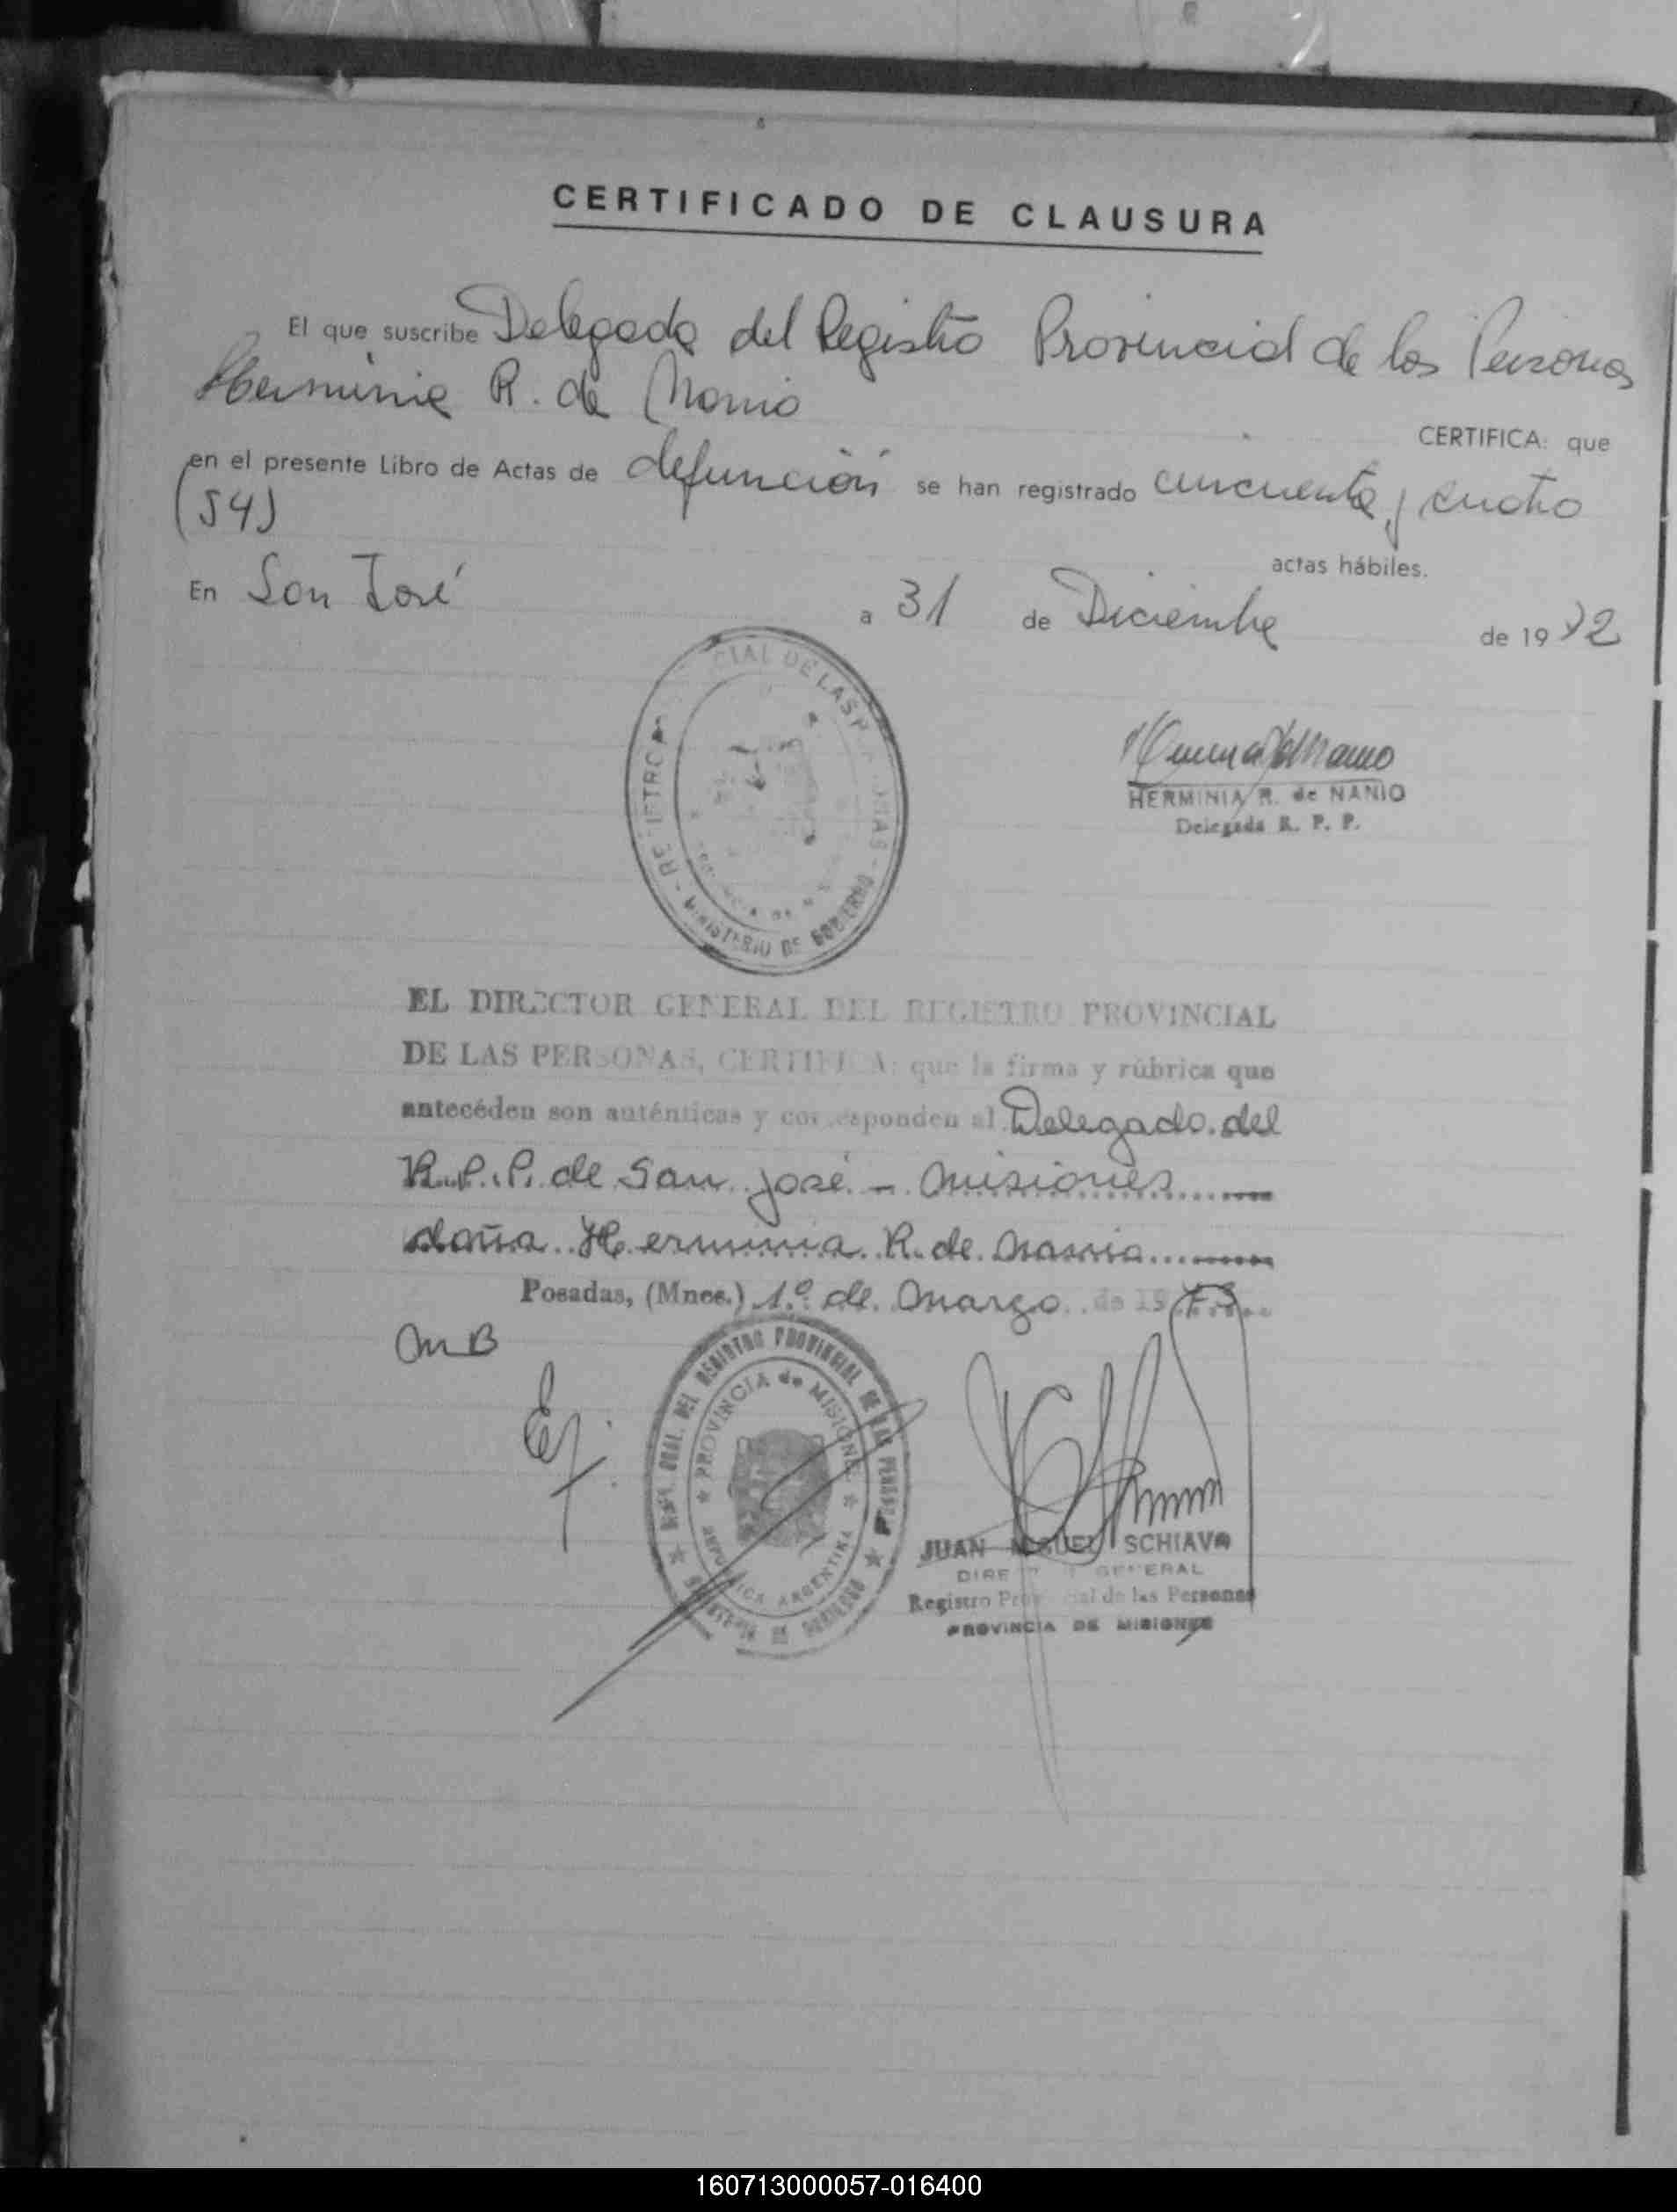 CERTIFICADO DE CLAUSURA
El que suscribe Delegada del Registro Provincial de las Personas
Herminia R. de Nanio
CERTIFICA: que
en el presente Libro de Actas de defunción se han registrado cincuenta y cuatro
(54)
actas hábiles.
En San José a 31 de Diciembre de 1972
CIAL DE LAS
MINISTERIO DE GOBIERNO
HERMINIA R. de NANIO
Delegada R. P. P.
EL DIRECTOR GENERAL DEL REGISTRO PROVINCIAL
DE LAS PERSONAS, CERTIFICA: que la firma y rúbrica que
antecéden son auténticas y corresponden al Delegado del
R.P.P. de San José - Misiones
doña Herminia R. de Nanio
Posadas, (Mnes.) 1º de Marzo de 1973
MB
DEL REGISTRO PROVINCIAL DE LAS PERSONAS
PROVINCIA de MISIONES
REPUBLICA ARGENTINA
JUAN MIGUEL SCHIAVO
DIRECTOR GENERAL
Registro Provincial de las Personas
PROVINCIA DE MISIONES
160713000057-016400